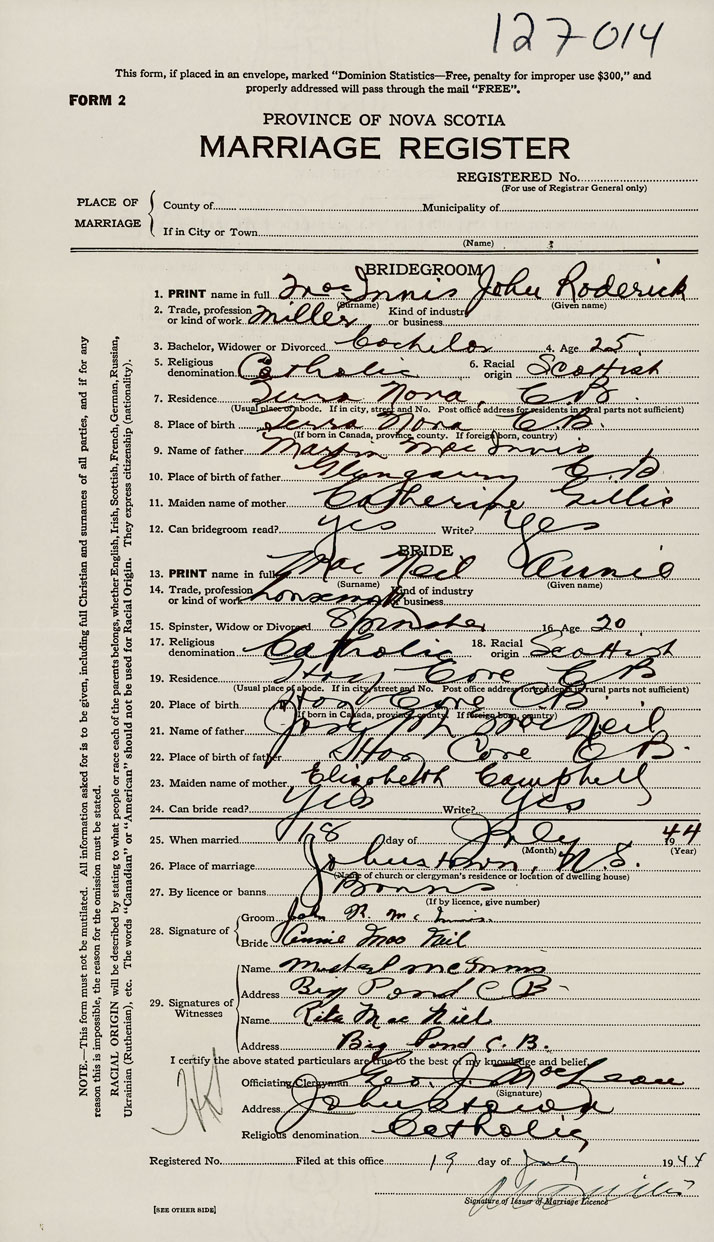 127014
This form, if placed in an envelope, marked "Dominion Statistics—Free, penalty for improper use $300," and
properly addressed will pass through the mail "FREE".
FORM 2
PROVINCE OF NOVA SCOTIA
MARRIAGE REGISTER
REGISTERED No.
(For use of Registrar General only)
PLACE OF MARRIAGE
County of Municipality of
If in City or Town
(Name)
BRIDEGROOM
1. PRINT name in full Mac Innis John Roderick
(Surname) (Given name)
2. Trade, profession or kind of work Miller Kind of industry or business
3. Bachelor, Widower or Divorced Bachelor 4. Age 25
5. Religious denomination Catholic 6. Racial origin Scottish
7. Residence Terra Nova, C.B.
(Usual place of abode. If in city, street and No. Post office address for residents in rural parts not sufficient)
8. Place of birth Terra Nova C.B.
(If born in Canada, province, county. If foreign born, country)
9. Name of father Mac Innis
10. Place of birth of father Glengarry C.B
11. Maiden name of mother Catherine Gillis
12. Can bridegroom read? yes Write? Yes
BRIDE
13. PRINT name in full Mac Neil Annie
(Surname) (Given name)
14. Trade, profession or kind of work Kind of industry or business
15. Spinster, Widow or Divorced Spinster 16. Age 20
17. Religious denomination Catholic 18. Racial origin Scottish
19. Residence Hay Cove C B
(Usual place of abode. If in city, street and No. Post office address for residents in rural parts not sufficient)
20. Place of birth Hay Cove C B
(If born in Canada, province, county. If foreign born, country)
21. Name of father Joseph Mac Neil
22. Place of birth of father Hay Cove C B.
23. Maiden name of mother Elizabeth Campbell
24. Can bride read? Yes Write? Yes
25. When married 18 day of July 1944
(Month) (Year)
26. Place of marriage Johnstown, N.S.
(Name of church or clergyman's residence or location of dwelling house)
27. By licence or banns Banns
(If by licence, give number)
28. Signature of
Groom John R. Mc Innis.
Bride Annie Mac Neil
29. Signatures of Witnesses
Name Michael McInnis
Address Big Pond C B
Name Rita Mac Niel
Address Big Pond C. B.
I certify the above stated particulars are true to the best of my knowledge and belief.
Officiating Clergyman Geo. J. MacLean
(Signature)
Address Johnstown
Religious denomination Catholic
Registered No. Filed at this office 19 day of July 1944
Signature of Issuer of Marriage Licence
[SEE OTHER SIDE]
NOTE.—This form must not be mutilated. All information asked for is to be given, including full Christian and surnames of all parties, and if for any
reason this is impossible, the reason for the omission must be stated.
RACIAL ORIGIN will be described by stating to what people or race each of the parents belongs, whether English, Irish, Scottish, French, German, Russian,
Ukrainian (Ruthenian), etc. The words "Canadian" or "American" should not be used for Racial Origin. They express citizenship (nationality).